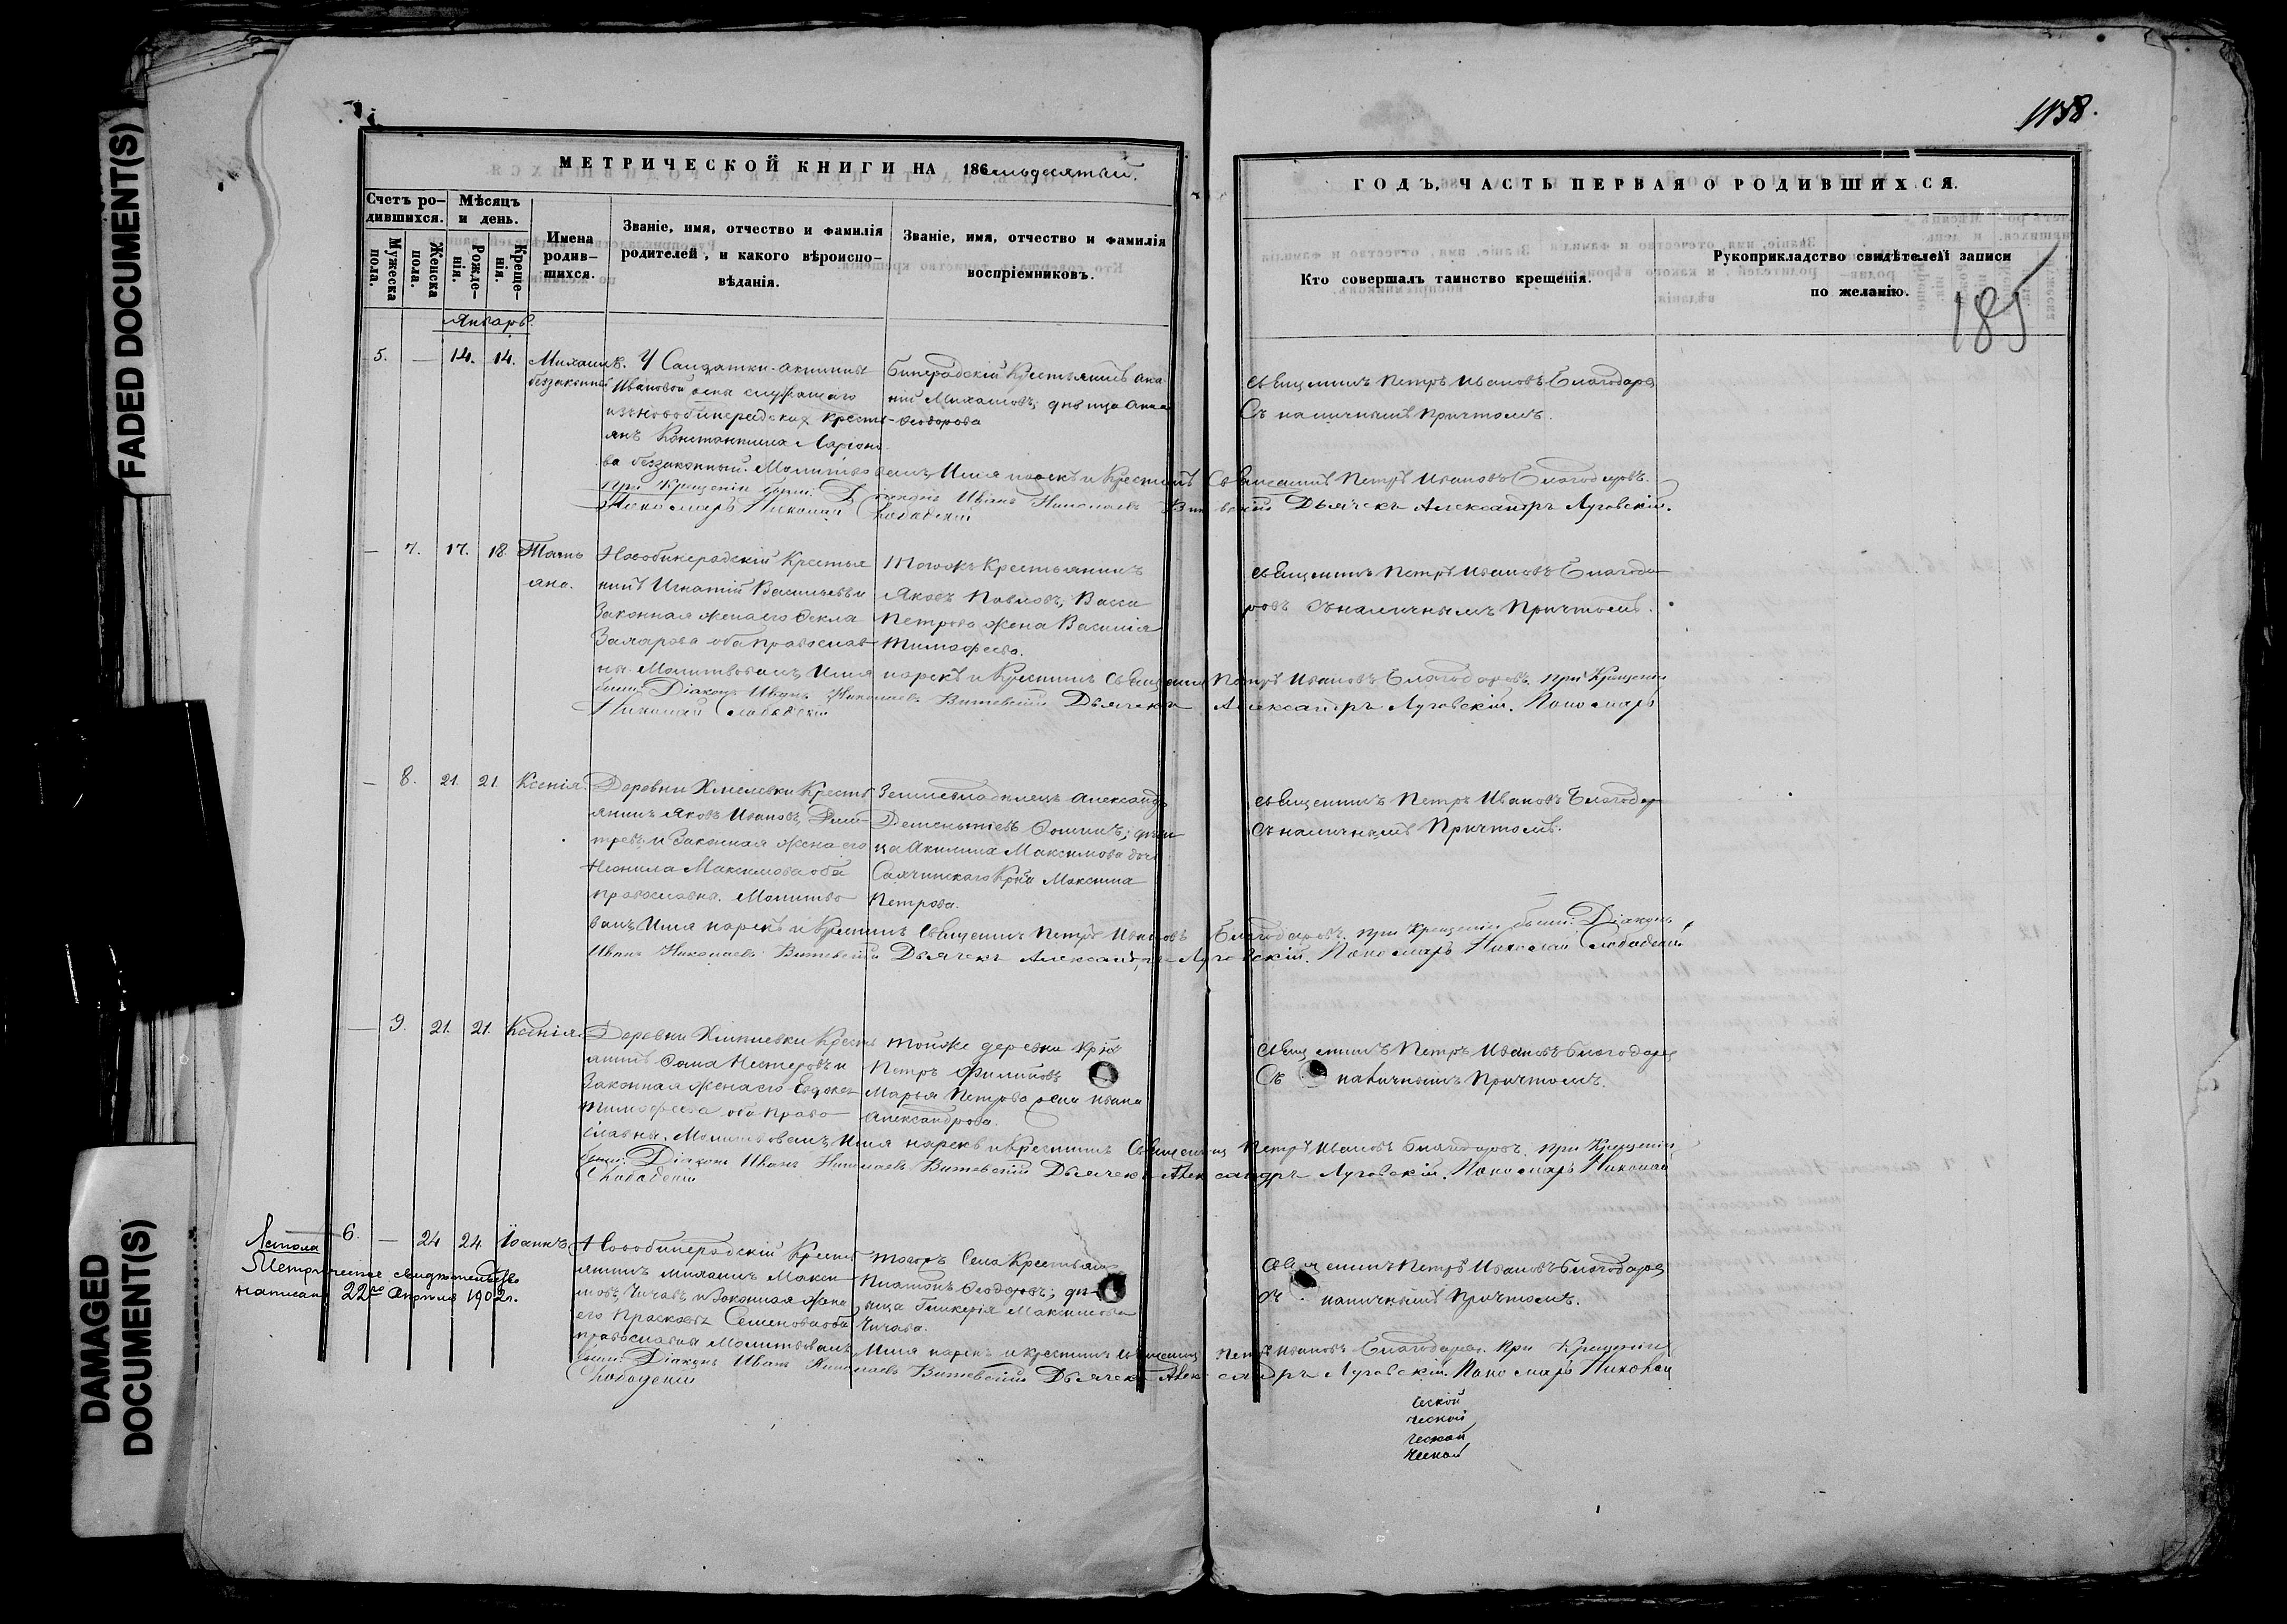 FADED DOCUMENT(S)
DAMAGED
DOCUMENT(S)
1138.
185
МЕТРИЧЕСКОЙ КНИГИ НА 186
ГОДЪ, ЧАСТЬ ПЕРВАЯ О РОДИВШИХСЯ.
Счетъ ро-
дившихся.
Мужеска
пола.
Женска
пола.
Мѣсяцъ
и день.
Рожде-
нія.
Креще-
нія.
Имена
родив-
шихся.
Званіе, имя, отчество и фамилія
родителей, и какого вѣроиспо-
вѣданія.
Званіе, имя, отчество и фамилія
воспріемниковъ.
Кто совершалъ таинство крещенія.
Рукоприкладство свидѣтелей записи
по желанію.
Январь.
5. — 14. 14. Михаилъ.
беззаконный
У Солдатки Акилины
Ивановой жены служащаго
изъ Новобинерадскихъ кресть-
янъ Константина Ларіоно
ва беззаконный. Молитвовалъ, Имя нарекъ и Крестилъ Священникъ Петръ Ивановъ Благодаровъ.
при Крещеніи были: Діаконъ Иванъ Николаевъ Дьячекъ Александръ Луговскій.
Пономарь Николай
Бинерадскій Крестьянинъ
Михайловъ; дѣвица Анна
Ѳеодорова
Священникъ Петръ Ивановъ Благодаров
Съ наличнымъ Причтомъ.
— 7. 17. 18. Тать
яна.
Новобинерадскій Крестья
нинъ Игнатій Васильевъ и
Законная жена его Ѳекла
Захарова оба православ
ны. Молитвовалъ, Имя нарекъ и Крестилъ Священникъ Петръ Ивановъ Благодаровъ. при Крещеніи
были: Діаконъ Иванъ Николаевъ Витевскій Дьячекъ Александръ Луговскій. Пономарь
Николай
Тогожъ Крестьянинъ
Яковъ Павловъ, Васса
Петрова жена Василія
Тимофеева.
Священникъ Петръ Ивановъ Благода
ровъ съ наличнымъ Причтомъ.
— 8. 21. 21. Ксенія.
Деревни Хмелевки Кресть
янинъ Яковъ Ивановъ Дми-
тревъ и Законная жена его
Неонила Максимова оба
православны. Молитво
валъ, Имя нарекъ и Крестилъ Священникъ Петръ Ивановъ Благодаровъ. при Крещеніи были: Діаконъ
Иванъ Николаевъ Витевскій Дьячекъ Александръ Луговскій. Пономарь Николай
Александръ
дѣви
ца Акилина Максимова дочь
Максима
Петрова.
Священникъ Петръ Ивановъ Благодар
Съ наличнымъ Причтомъ.
— 9. 21. 21. Ксенія.
Деревни Хмелевки Кресть
янинъ Ѳома Нестеровъ и
Законная жена его Евдокія
Тимофеева оба право-
славны. Молитвовалъ, Имя нарекъ и Крестилъ Священникъ Петръ Ивановъ Благодаровъ. при Крещеніи
были: Діаконъ Иванъ Николаевъ Витевскій Дьячекъ Александръ Луговскій. Пономарь Николай
тойже деревни
Петръ Филиповъ
Марья Петрова жена Ивана
Александрова.
Священникъ Петръ Ивановъ Благодаров
Съ наличнымъ Причтомъ.
6. — 24 24. Іоаннъ.
Метрическое свидѣтельство
написано 22го Апрѣля 1902 г.
Новобинерадскій Кресть
янинъ Михаилъ Макси-
мовъ Чичавъ и Законная жена
его Прасковья Семенова оба
православны Молитвовалъ, Имя нарекъ и крестилъ Священникъ Петръ Ивановъ Благодаров. При Крещеніи
были: Діаконъ Иванъ Николаевъ Витевскій Дьячекъ Александръ Луговскій. Пономарь Николай
тогожъ Села Крестьянинъ
Платонъ Ѳеодоровъ; дѣ-
вица Гликерія Максимова
Чичава.
Священникъ Петръ Ивановъ Благодаров
съ наличнымъ Причтомъ.
ческой
ческой
ческой
ческой